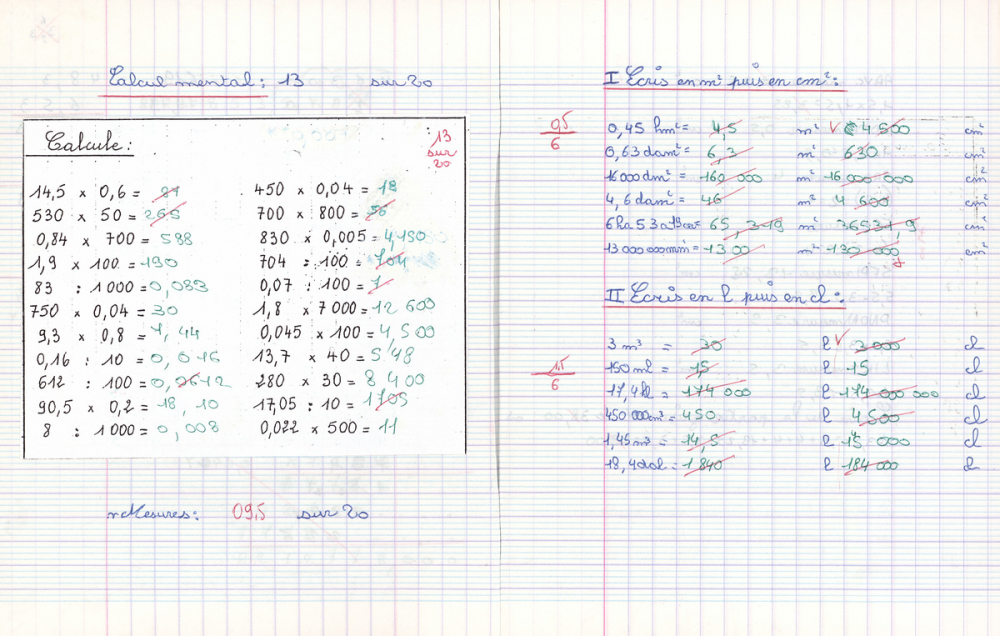 Calcul mental: 13 sur 20
Calcule:
13
sur
20
14,5 x 0,6 = 87
530 x 50 = 265
0,84 x 700 = 588
1,9 x 100 = 190
83 : 1000 = 0,083
750 x 0,04 = 30
9,3 x 0,8 = 7,44
0,16 : 10 = 0,016
612 : 100 = 0,0612
90,5 x 0,2 = 18,10
8 : 1000 = 0,008
450 x 0,04 = 18
700 x 800 = 56
830 x 0,005 = 4,150
704 : 100 = 704
0,07 : 100 = 7
1,8 x 7000 = 12 600
0,045 x 100 = 4,500
13,7 x 40 = 548
280 x 30 = 8 400
17,05 : 10 = 1705
0,022 x 500 = 11
Mesures: 09,5 sur 20
I Ecris en m² puis en cm²:
0,5
6
0,45 hm² = 4,5 m² V 4 500 cm²
0,63 dam² = 6,3 m² 630 cm²
16000 dm² = 160 000 m² 16 000 000 cm²
4,6 dam² = 46 m² 4 600 cm²
6ha 53a 19ca = 65,319 m² 36531,9 cm²
13 000 000 mm² = 1300 m² 130 000 cm²
II Ecris en l puis en cl:
1,5
6
3 m³ = 30 l V 3 000 cl
150 ml = 1,5 l 15 cl
17,4 kl = 174 000 l 174 000 000 cl
450 000 cm³ = 450 l 4 500 cl
1,45 m³ = 14,5 l 15 000 cl
18,4 dal = 1 840 l 184 000 cl